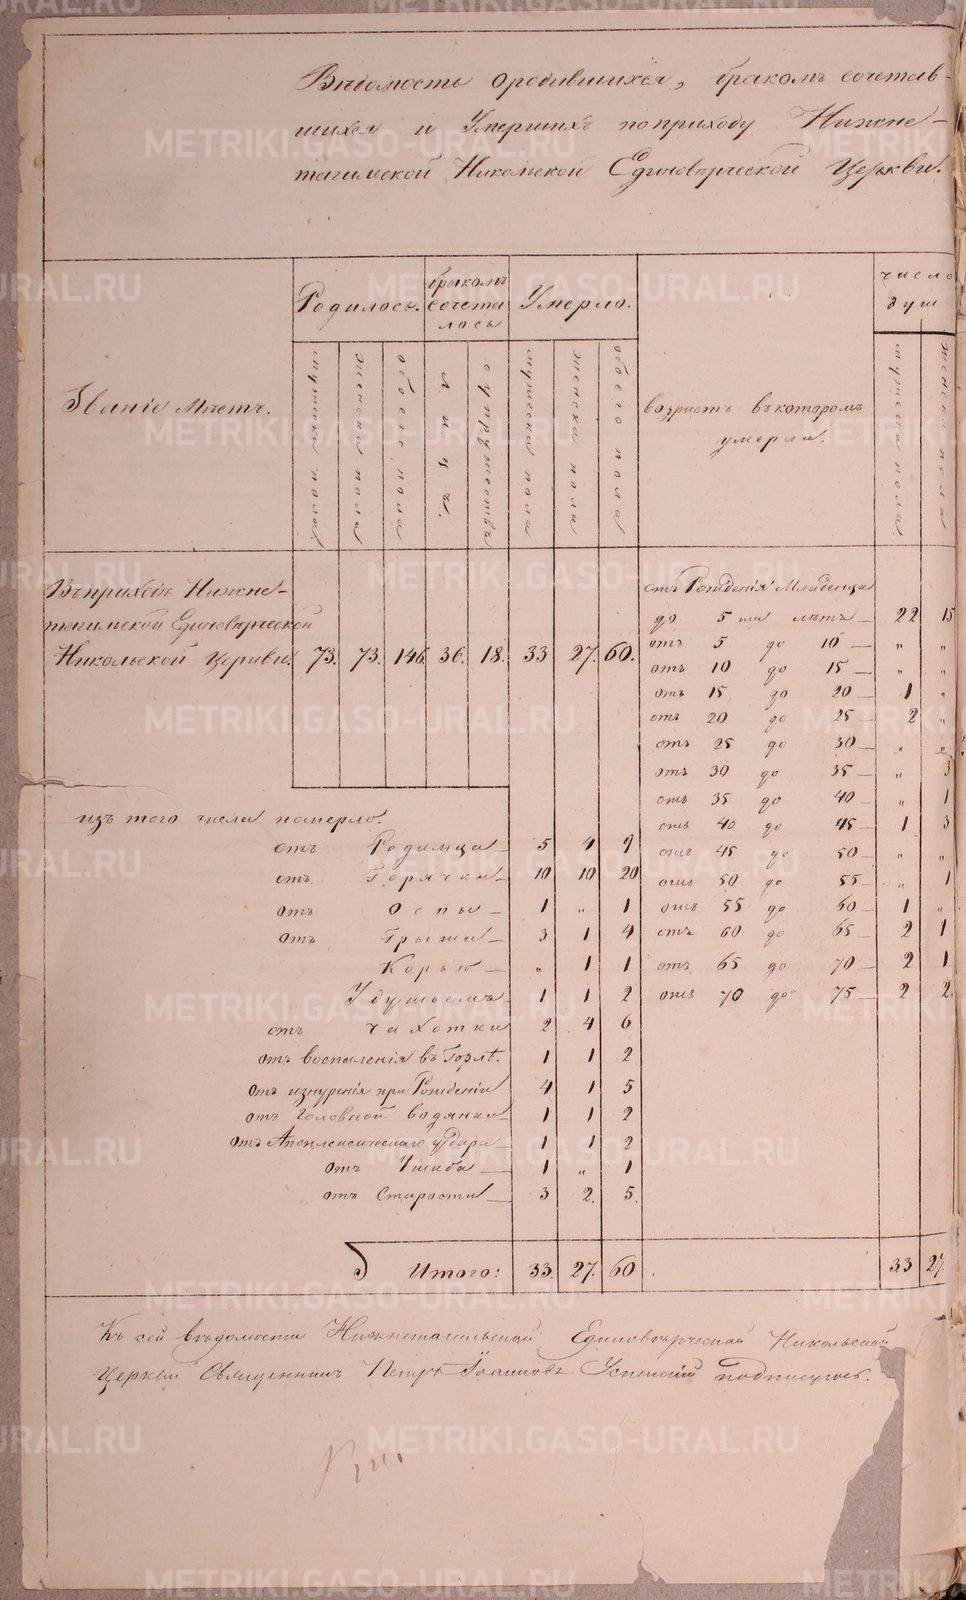 Вѣдомость о родившихся, бракомъ сочетав-
шихся и Умершихъ по приходу Нижне-
тагильской Никольской Единовѣрческой Церкви.
Званіе Мѣстъ.
Родилось.
бракомъ сочета лось
Умерло.
возрастъ въ которомъ умерли.
число душ
мужеска пола
женска пола
обоего пола
лицъ.
супружествъ
мужеска пола
женска пола
обоего пола
мужеска пола
женска пола
Въ приходѣ Нижне-
тагильской Единовѣрческой
Никольской Церкви. 73. 73. 146. 36. 18. 33 27. 60.
отъ Рожденія Младенца
до 5 ти лѣтъ 22 15
отъ 5 до 10 — „ „
отъ 10 до 15 — „ „
отъ 15 до 20 — 1 „
отъ 20 до 25 — 2 „
отъ 25 до 30 — „ „
отъ 30 до 35 — „ 3
отъ 35 до 40 — „ 1
отъ 40 до 45 — 1 3
отъ 45 до 50 — „ „
отъ 50 до 55 — „ 1
отъ 55 до 60 — 1 „
отъ 60 до 65 — 2 1
отъ 65 до 70 — 2 1
отъ 70 до 75 — 2 2
изъ того числа померло.
отъ Родимца 5 4 9
отъ Горячки 10 10 20
отъ Оспы — 1 „ 1
отъ Грыжи — 3 1 4
Корью — „ 1 1
Удушьемъ 1 1 2
отъ чахотки 2 4 6
отъ воспаленія въ Горлѣ. 1 1 2
отъ изнуренія при Рожденіи 4 1 5
отъ Головной водянки 1 1 2
отъ Апоплексическаго удара 1 1 2
отъ Ушиба — 1 „ 1
отъ Старости — 3 2. 5.
Итого: 33. 27. 60 33 27.
Къ сей вѣдомости Нижнетагильской Единовѣрческой Никольской
Церкви Священникъ Петръ Іоанновъ Успенскій подписуюсь.
METRIKI.GASO-URAL.RU